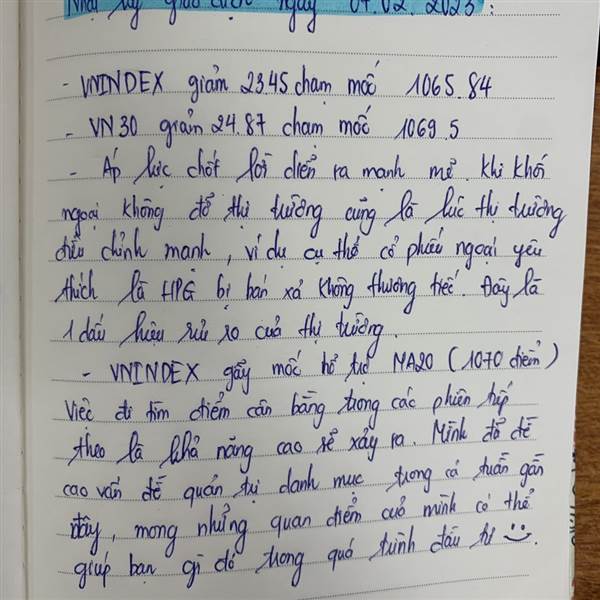 Nhật ký giao dịch ngày 07.02.2023:
- VNINDEX giảm 23.45 chạm mốc 1065.84
- VN30 giảm 24.87 chạm mốc 1069.5
- Áp lực chốt lời diễn ra mạnh mẽ. Khi khối
ngoại không đỡ thị trường cũng là lúc thị trường
điều chỉnh mạnh, ví dụ cụ thể cổ phiếu ngoại yêu
thích là HPG bị bán xả không thương tiếc. Đây là
1 dấu hiệu rủi ro của thị trường.
- VNINDEX gãy mốc hỗ trợ MA20 (1070 điểm)
Việc đi tìm điểm cân bằng trong các phiên tiếp
theo là khả năng cao sẽ xảy ra. Mình đã đề
cao vấn đề quản trị danh mục trong cả tuần gần
đây, mong những quan điểm của mình có thể
giúp bạn gì đó trong quá trình đầu tư